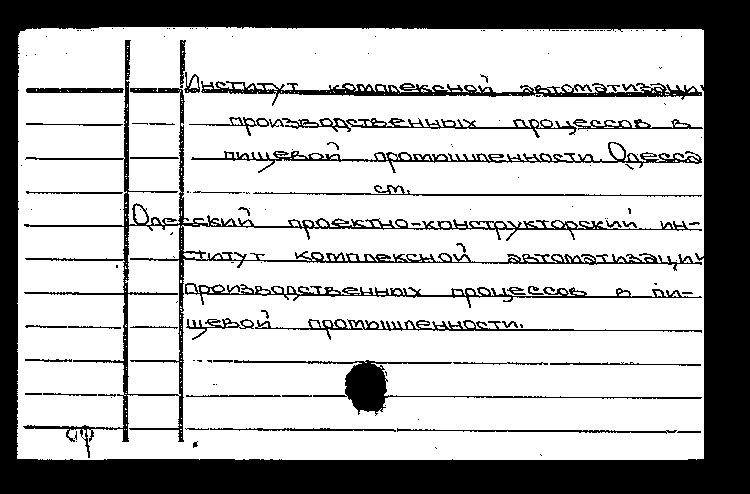 Институт комплексной автоматизации
производственных процессов в
пищевой промышленности. Одесса
см.
Одесский проектно-конструкторский ин-
ститут комплексной автоматизации
производственных процессов в пи-
щевой промышленности.